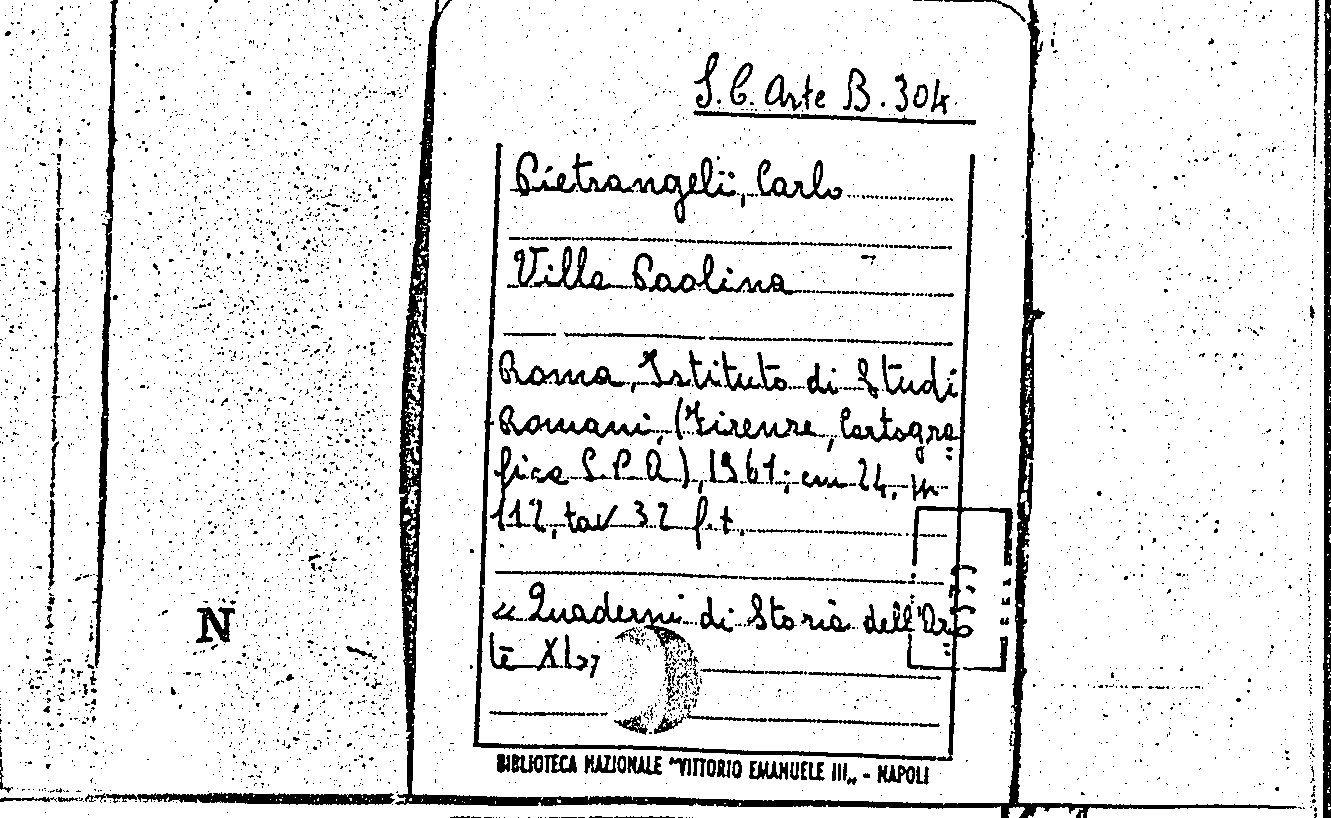 S.C. Arte B.304
Pietrangeli, Carlo
Villa Paolina
Roma, Istituto di Studi
Romani, (Firenze, Cartogra=
fica S.P.A), 1961; cm 24, pp
112, tav 32 f.t.
« Quaderni di Storia dell'Ar=
te XI »
N
BIBLIOTECA NAZIONALE "VITTORIO EMANUELE III„ - NAPOLI